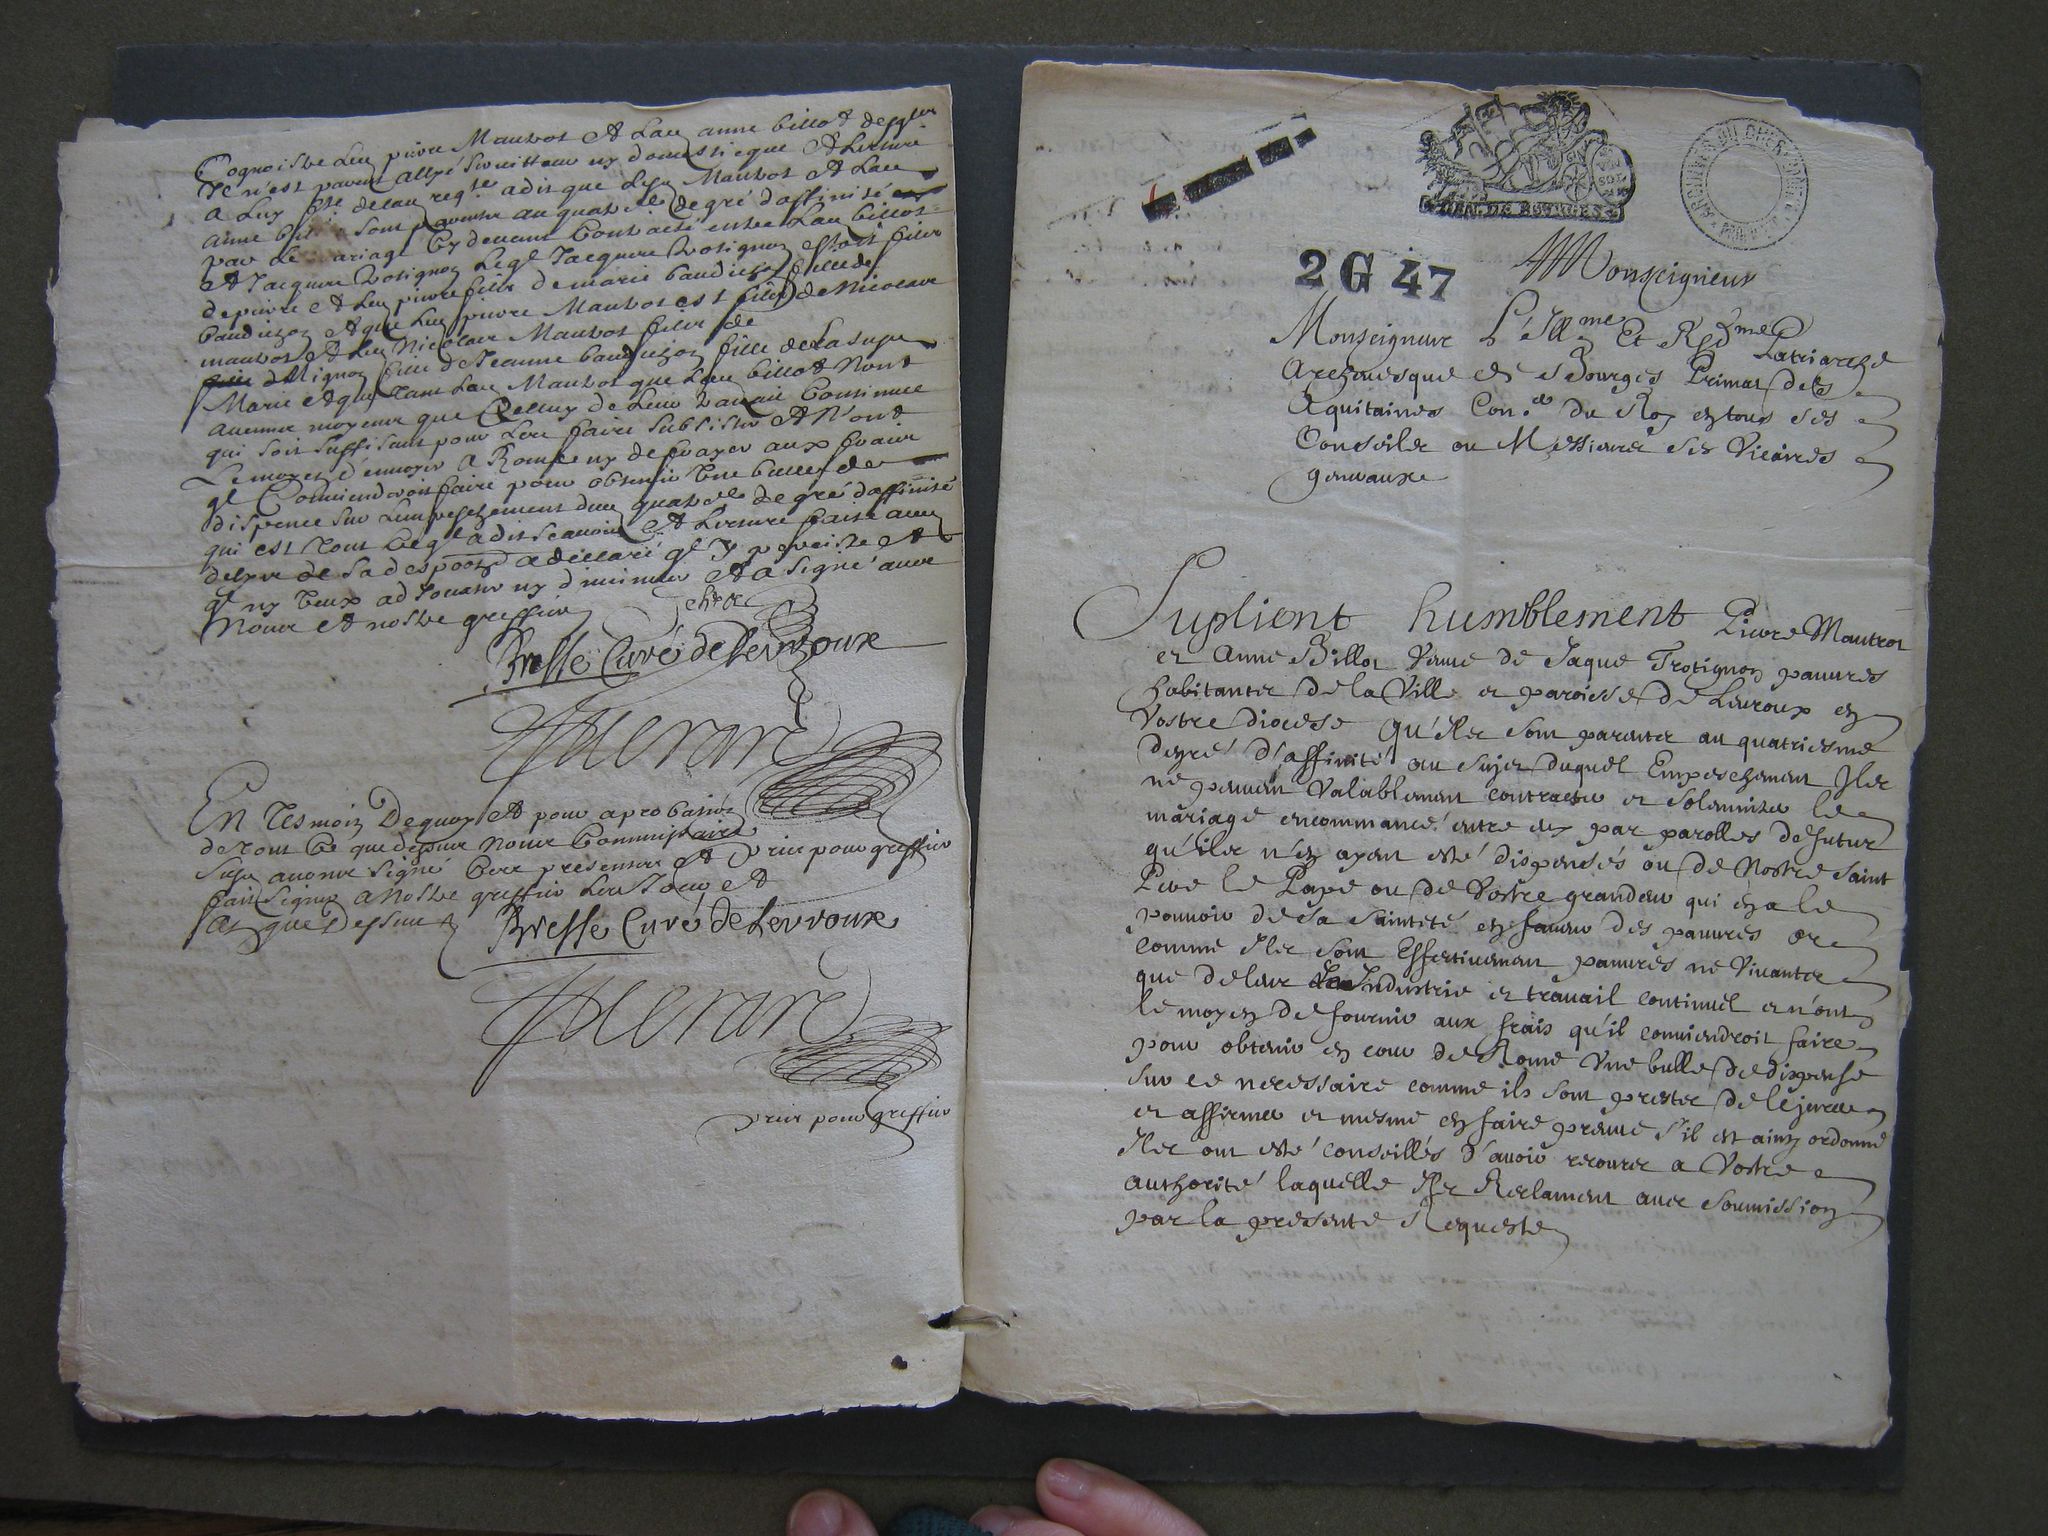 Cognoistre led pierre Mautrot et lad anne billot desquels
il n'est parent allyé serviteur ny domestique et lecture
a luy fte de lad reqte a dit que lesd Mautrot et lad
anne billot sont parentz au quatre degré d'affinité
par le mariage cy devant contracté entre lad billot
et Jacques trotignon leql Jacques trotignon estoit filz
de pierre et led pierre filz de marie baudichon fille de
baudichon et que led pierre Mautrot est filz de Nicolas
mautrot et led Nicolas Mautrot filz de
Mignon fille de Jeanne baudichon fille de la susd
Marie et que tant led Mautrot que lad billot n'ont
aucuns moyens que celluy de leur travail continuel
qui soit suffisant pour les faire subsister et n'ont
le moyen d'envoyer a Rome ny de frayer aux fraix
ql conviendroit faire pour obtenir une bulle de
dispence sur l'empeschement du quatre degré d'affinité
qui est tout ce ql a dit scavoir et lecture faite
de sa depoon a declaré ql y persiste et
ql ny veux adjouster ny diminuer et a signé avec
nous et nostre greffier
Bresse Curé de Levroux
En tesmoin de quoy et pour aprobation
de tout ce que dessus nous Commissaire
susd avons signé ces presentes et
fait signer a nostre greffier les jour et
an que dessus
pris pour greffier
Bresse Curé de Levroux
pris pour greffier
ARCHIVES DU CHER
GEN. DE BOURGES
2 G 47
Monseigneur
Monseigneur L'Illme et Rdme Patriarche
Archevesque de Bourges Primat des
Aquitaines Coner du Roy en tous ses
Conseils ou Messieurs ses Vicaires
generaux
Suplient humblement Pierre Mautrot
et Anne Billot veuve de Jaque Trotignon pauvres
habitants de la Ville et paroisse de Levroux en
Vostre diocese qu'ils sont parents au quatriesme
degré d'affinité au sujet duquel Empeschement Ils
ne peuvent valablement contracter et solemniser le
mariage encommancé entre eux par parolles de futur
qu'ils n'en ayent esté dispensés ou de Nostre Saint
Pere le Pape ou de Vostre grandeur qui en a le
pouvoir de sa Sainteté en faveur des pauvres or
comme Ils sont Effectivement pauvres ne vivants
que de leur Industrie et travail continuel et n'ont
le moyen de fournir aux frais qu'il conviendroit faire
pour obtenir en cour de Rome Une bulle de dispense
sur ce necessaire comme ils sont prests de le jurer
et affirmer et mesme en faire preuve s'il est ainsy ordonné
Ils ont esté conseillés d'avoir recours a Vostre
authorité laquelle Ils Reclament avec soumission
par la presente Requeste